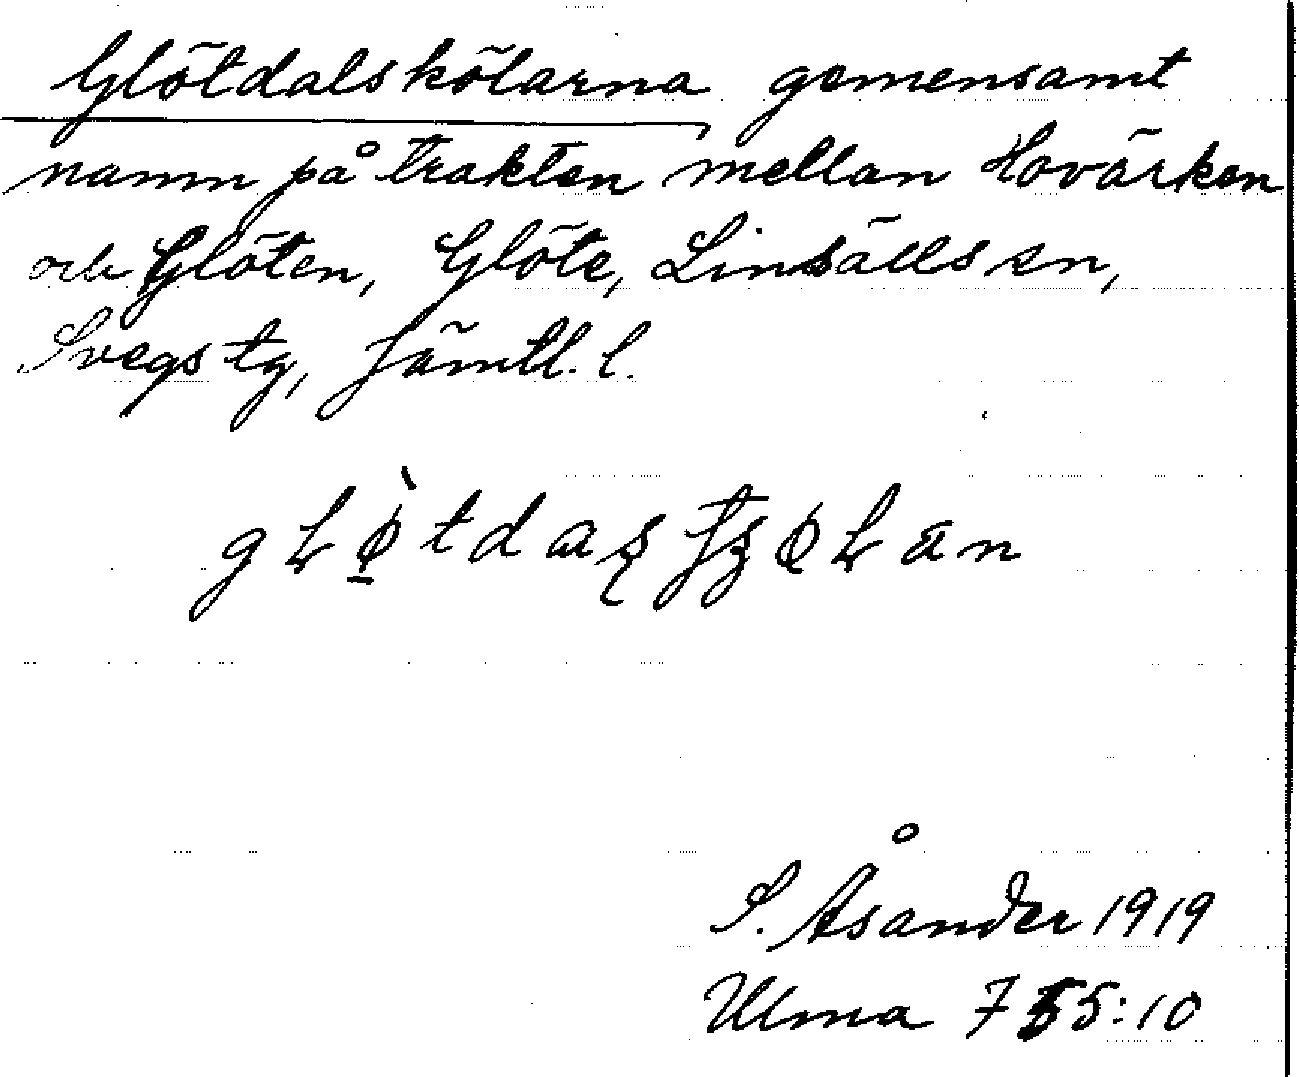 Glötdalskölarna gemensamt
namn på trakten mellan Hovärken
och Glöten, Glöte, Linsälls sn,
Svegs tg, Jämtl. l.
S. Åsander 1919
Ulma 755:10